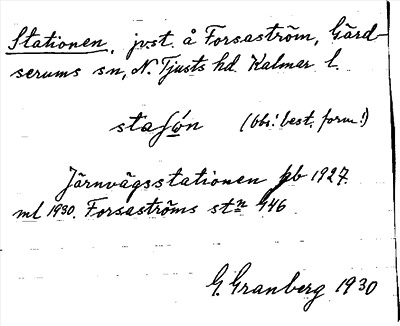 Stationen, jvst. å Forsaström, Gärd-
serums sn, N. Tjusts hd. Kalmar l.
staʃón (obs! best. form!)
Järnvägsstationen pb 1927.
ml 1930. Forsaströms stn 946
G. Granberg 1930